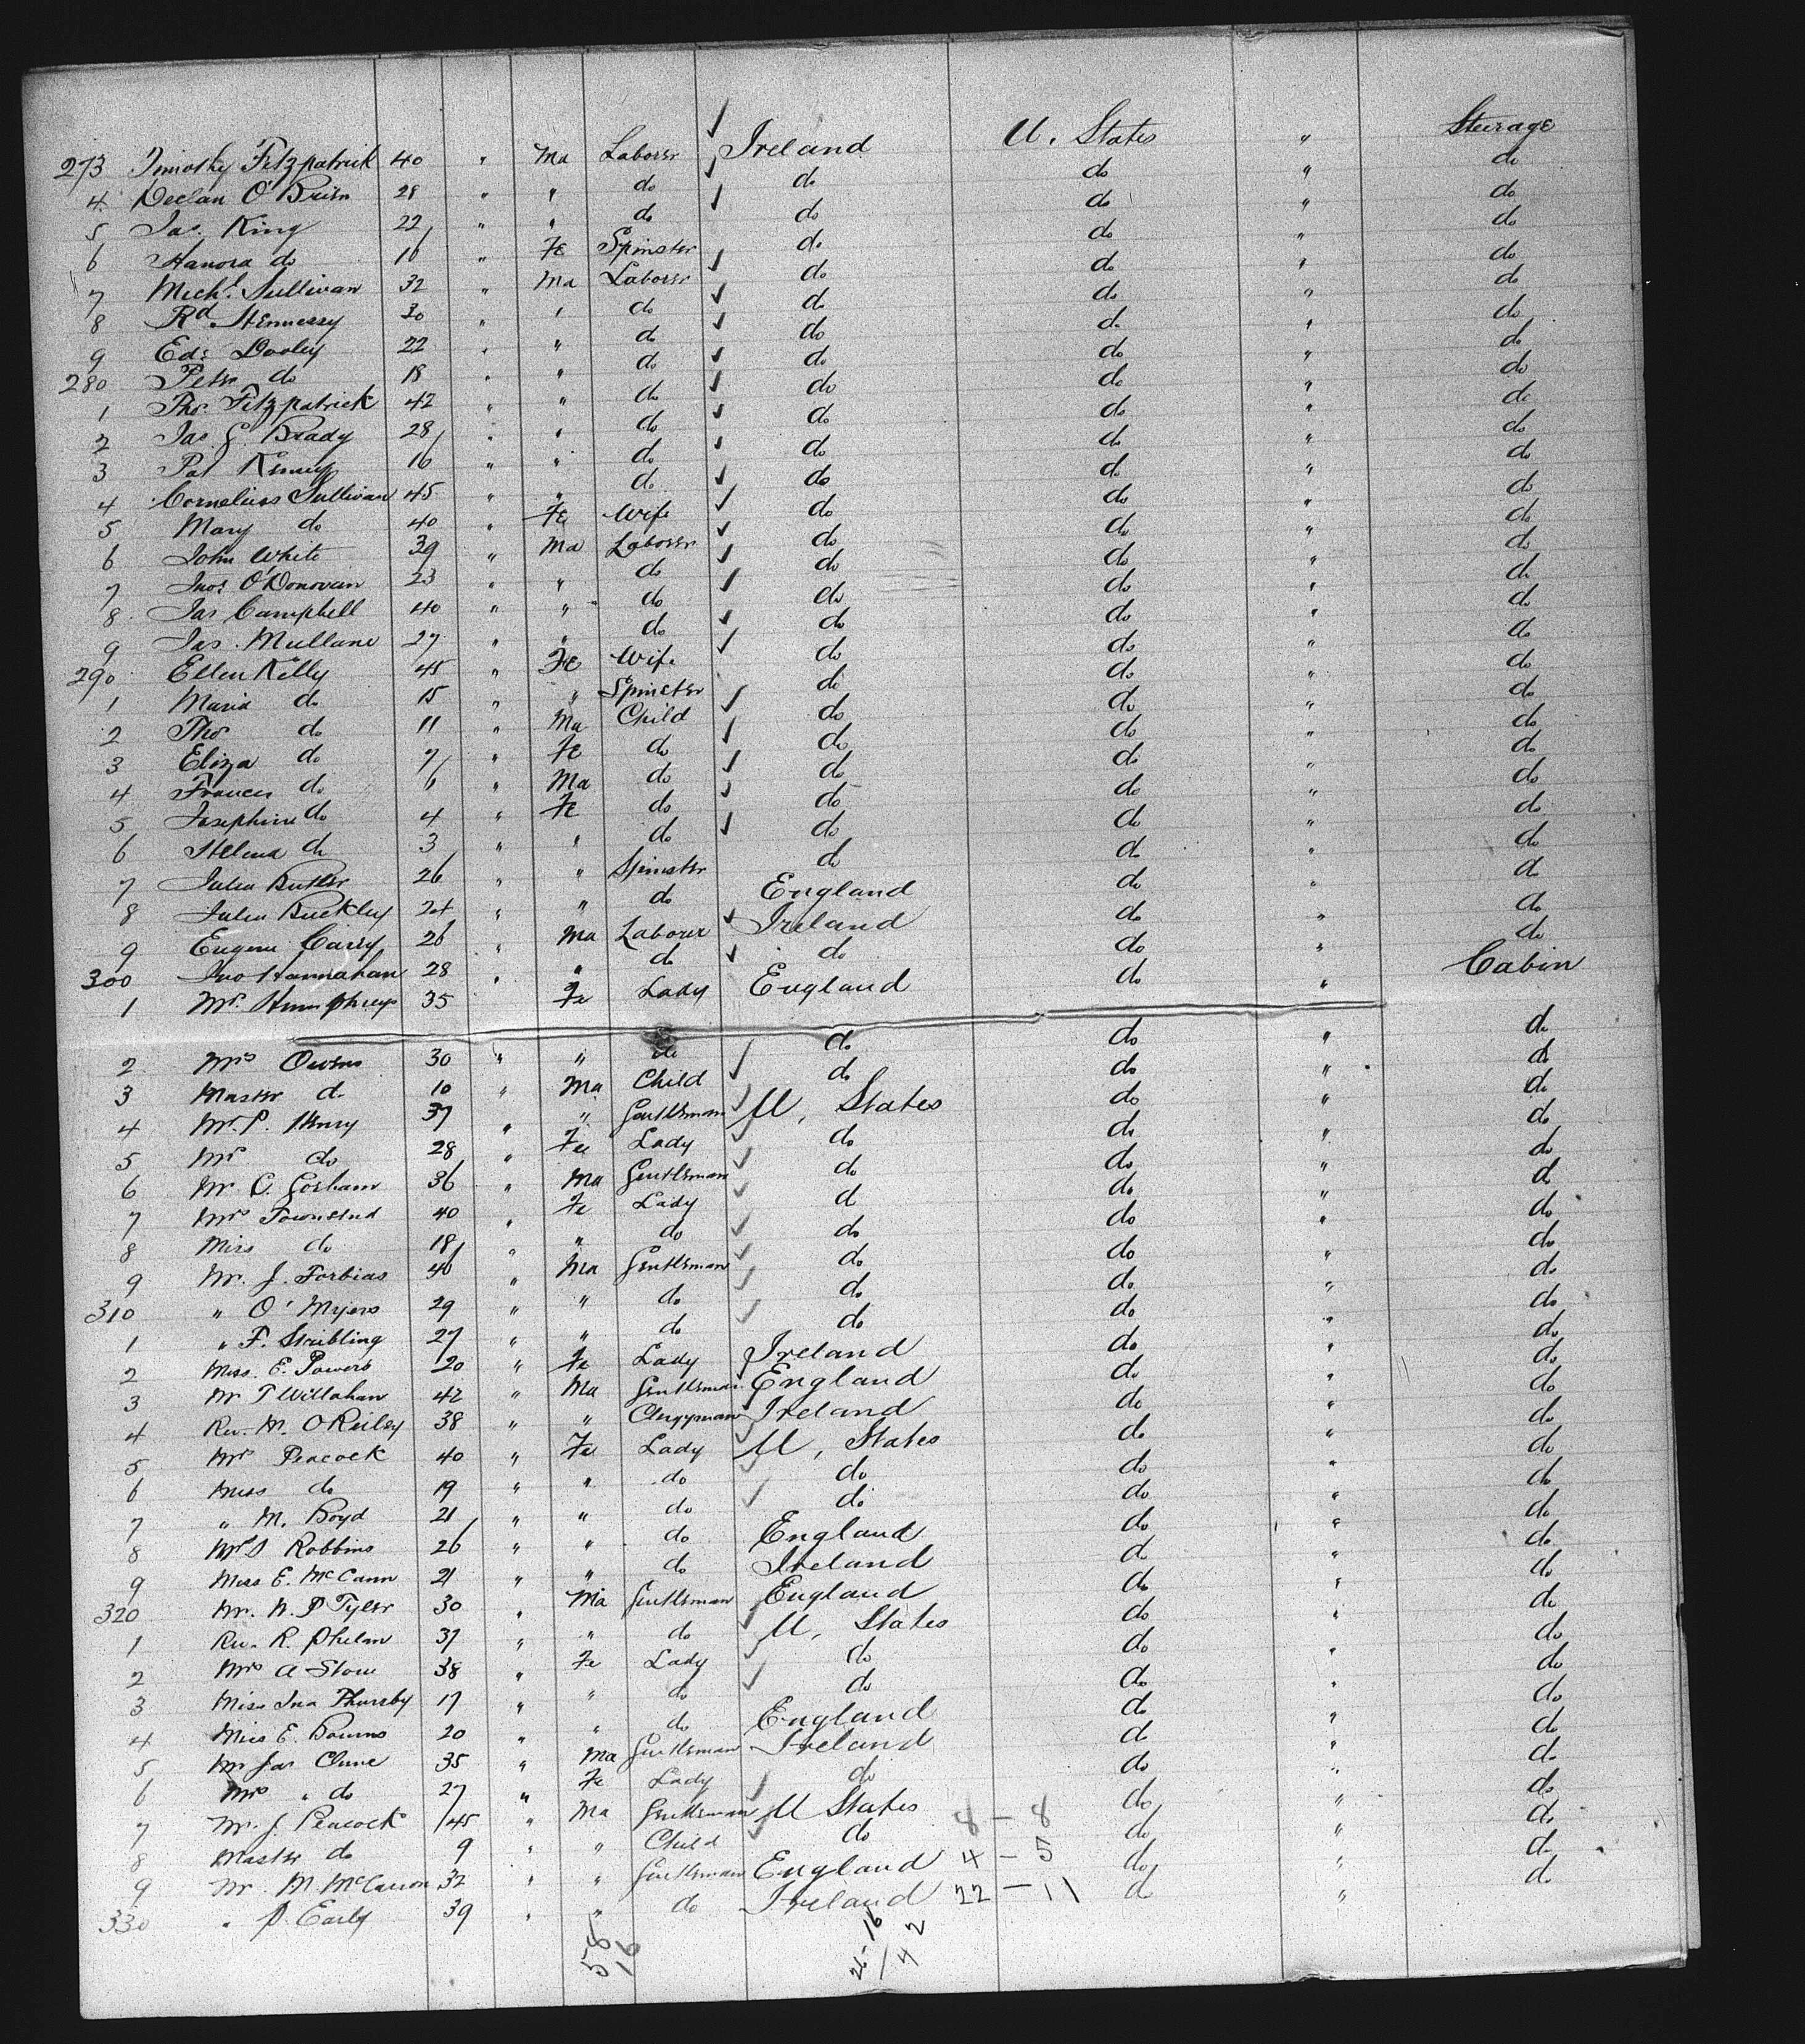 273 Timothy Fitzpatrick 40 " Ma Laborer Ireland U. States " Steerage
4 Declan O'Brien 28 " " do do do " do
5 Jas. King 22 " " do do do " do
6 Hanora do 16 " Fe Spinster do do " do
7 Michl. Sullivan 32 " Ma Laborer do do " do
8 Rd. Hennessy 30 " " do do do " do
9 Edd. Dooley 22 " " do do do " do
280 Peter do 18 " " do do do " do
1 Thos. Fitzpatrick 42 " " do do do " do
2 Jas. G. Brady 28 " " do do do " do
3 Pat Kenny 16 " " do do do " do
4 Cornelius Sullivan 45 " " do do do " do
5 Mary do 40 " Fe Wife do do " do
6 John White 39 " Ma Laborer do do " do
7 Jno. O'Donovan 23 " " do do do " do
8 Jas Campbell 40 " " do do do " do
9 Jas. Mullane 27 " " do do do " do
290 Ellen Kelly 45 " Fe Wife do do " do
1 Maria do 15 " " Spinster do do " do
2 Thos do 11 " Ma Child do do " do
3 Eliza do 7 " Fe do do do " do
4 Frances do 6 " Ma do do do " do
5 Josephine do 4 " Fe do do do " do
6 Helena do 3 " " do do do " do
7 Julia Butler 26 " " Spinster do do " do
8 Julia Buckley 24 " " do England do " do
9 Eugene Carey 26 " Ma Labourer Ireland do " do
300 Jno Hannahan 28 " " do do do " do
1 Mrs. Humphreys 35 Fe Lady England do " Cabin
2 Mrs Owens 30 " " do do do " do
3 Master do 10 " Ma Child do do " do
4 Mr. P. Henry 37 " " Gentleman U, States do " do
5 Mrs do 28 " Fe Lady do do " do
6 Mr C. Gorham 36 " Ma Gentleman do do " do
7 Mrs Townsend 40 " Fe Lady do do " do
8 Miss do 18 " " do do do " do
9 Mr. J. Forbias 40 " Ma Gentleman do do " do
310 " O' Myers 29 " " do do do " do
1 " F. Stribling 27 " " do do do " do
2 Miss. E. Powers 20 " Fe Lady Ireland do " do
3 Mr T Willahan 42 " Ma Gentleman England do " do
4 Rev. M. O Reiley 38 " " Clergyman Ireland do " do
5 Mrs Peacock 40 " Fe Lady U, States do " do
6 Miss do 19 " " do do do " do
7 " M. Boyd 21 " " do do do " do
8 Mrs Robbins 26 " " do England do " do
9 Miss E. McCann 21 " " do Ireland do " do
320 Mr. N. P Tyler 30 " Ma Gentleman England do " do
1 Rev. R. Phelan 37 " " do U, States do " do
2 Mrs A Stow 38 " Fe Lady do do " do
3 Miss Ina Thursby 17 " " do do do " do
4 Miss E. Bourns 20 " " do England do " do
5 Mr Jas Clune 35 " Ma Gentleman Ireland do " do
6 Mrs " do 27 " Fe Lady do do " do
7 Mr. J. Peacock 45 " Ma Gentleman U States 8 - 8 do " do
8 Master do 9 " " Child do do " do
9 Mr. M McCarron 32 " " Gentleman England 4 - 5 do " do
330 " P. Early 39 " " do Ireland 22 - 11 do " do
58 16
26-16
/ 4 2